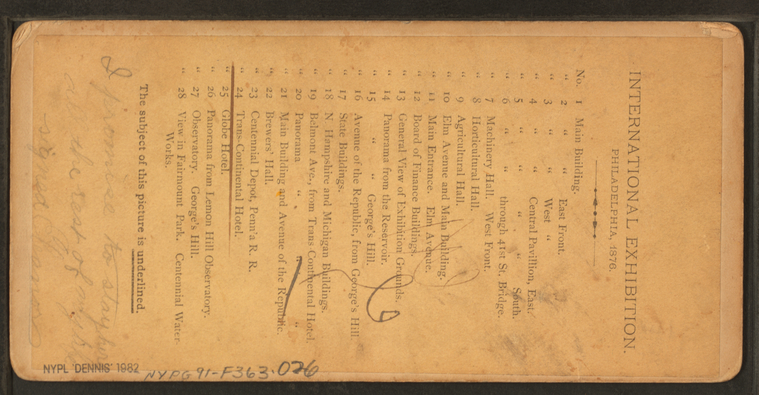 INTERNATIONAL EXHIBITION.
PHILADELPHIA, 1876.
No. 1 Main Building.
" 2 " " East Front.
" 3 " " West "
" 4 " " Central Pavillion, East.
" 5 " " " " South.
" 6 " " through 41st St. Bridge.
" 7 Machinery Hall. West Front.
" 8 Horticultural Hall.
" 9 Agricultural Hall.
" 10 Elm Avenue and Main Building.
" 11 Main Entrance. Elm Avenue.
" 12 Board of Finance Buildings.
" 13 General View of Exhibition Grounds.
" 14 Panorama from the Reservoir.
" 15 " " George's Hill.
" 16 Avenue of the Republic, from George's Hill
" 17 State Buildings.
" 18 N Hampshire and Michigan Buildings.
" 19 Belmont Ave., from Trans-Continental Hotel.
" 20 Panorama " " "
" 21 Main Building and Avenue of the Republic.
" 22 Brewers' Hall.
" 23 Centennial Depot, Penn'a R. R.
" 24 Trans-Continental Hotel.
" 25 Globe Hotel.
" 26 Panorama from Lemon Hill Observatory.
" 27 Observatory. George's Hill.
" 28 View in Fairmount Park. Centennial Water
Works.
The subject of this picture is underlined.
I promise to stay
the rest of my
NYPL 'DENNIS' 1982
NYPG91-F363.026